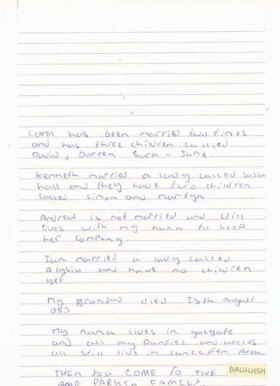 has been married two times
and has three children called
David, Darren Susan - Jane.
Kenneth married a lady called Susan
and they have two children
called Simon and martyn
Andrew is not married and still
lives with my nana to keep
her company.
Ian married a lady called
and have no children
yet
My grandad died 13th August
My nana lives in
and all my families and
all still lives in Area
THEN YOU COME TO THE
AND PARKIN FAMILY